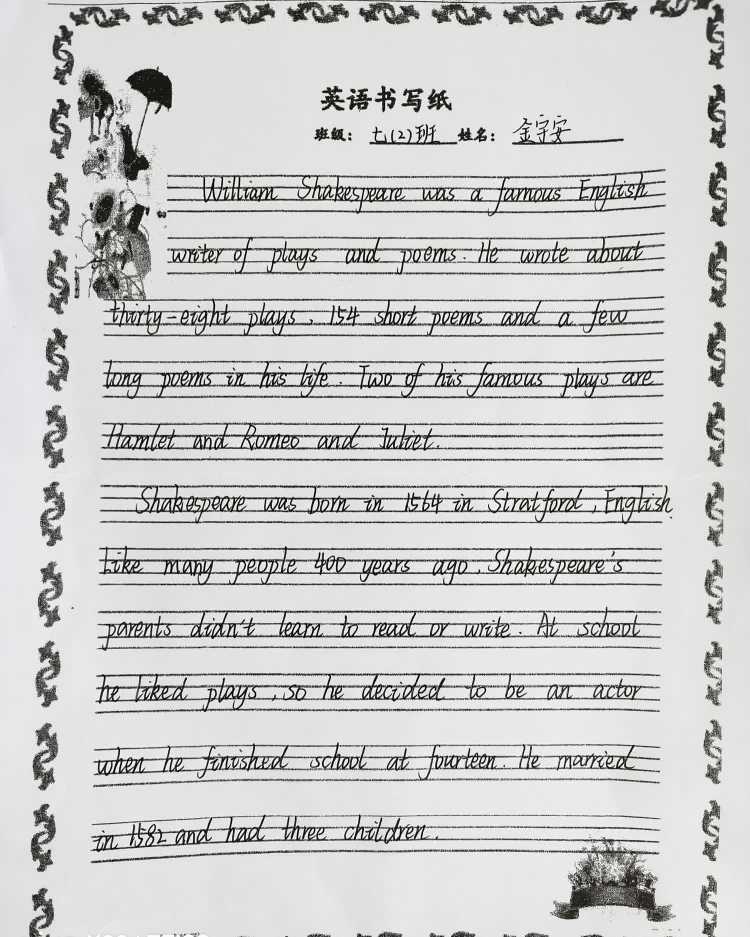 英语书写纸
班级： 七(2)班 姓名： 金宇安
William Shakespeare was a famous English
writer of plays and poems. He wrote about
thirty-eight plays, 154 short poems and a few
long poems in his life. Two of his famous plays are
Hamlet and Romeo and Juliet.
Shakespeare was born in 1564 in Stratford, English.
Like many people 400 years ago, Shakespeare's
parents didn't learn to read or write. At school
he liked plays, so he decided to be an actor
when he finished school at fourteen. He married
in 1582 and had three children.